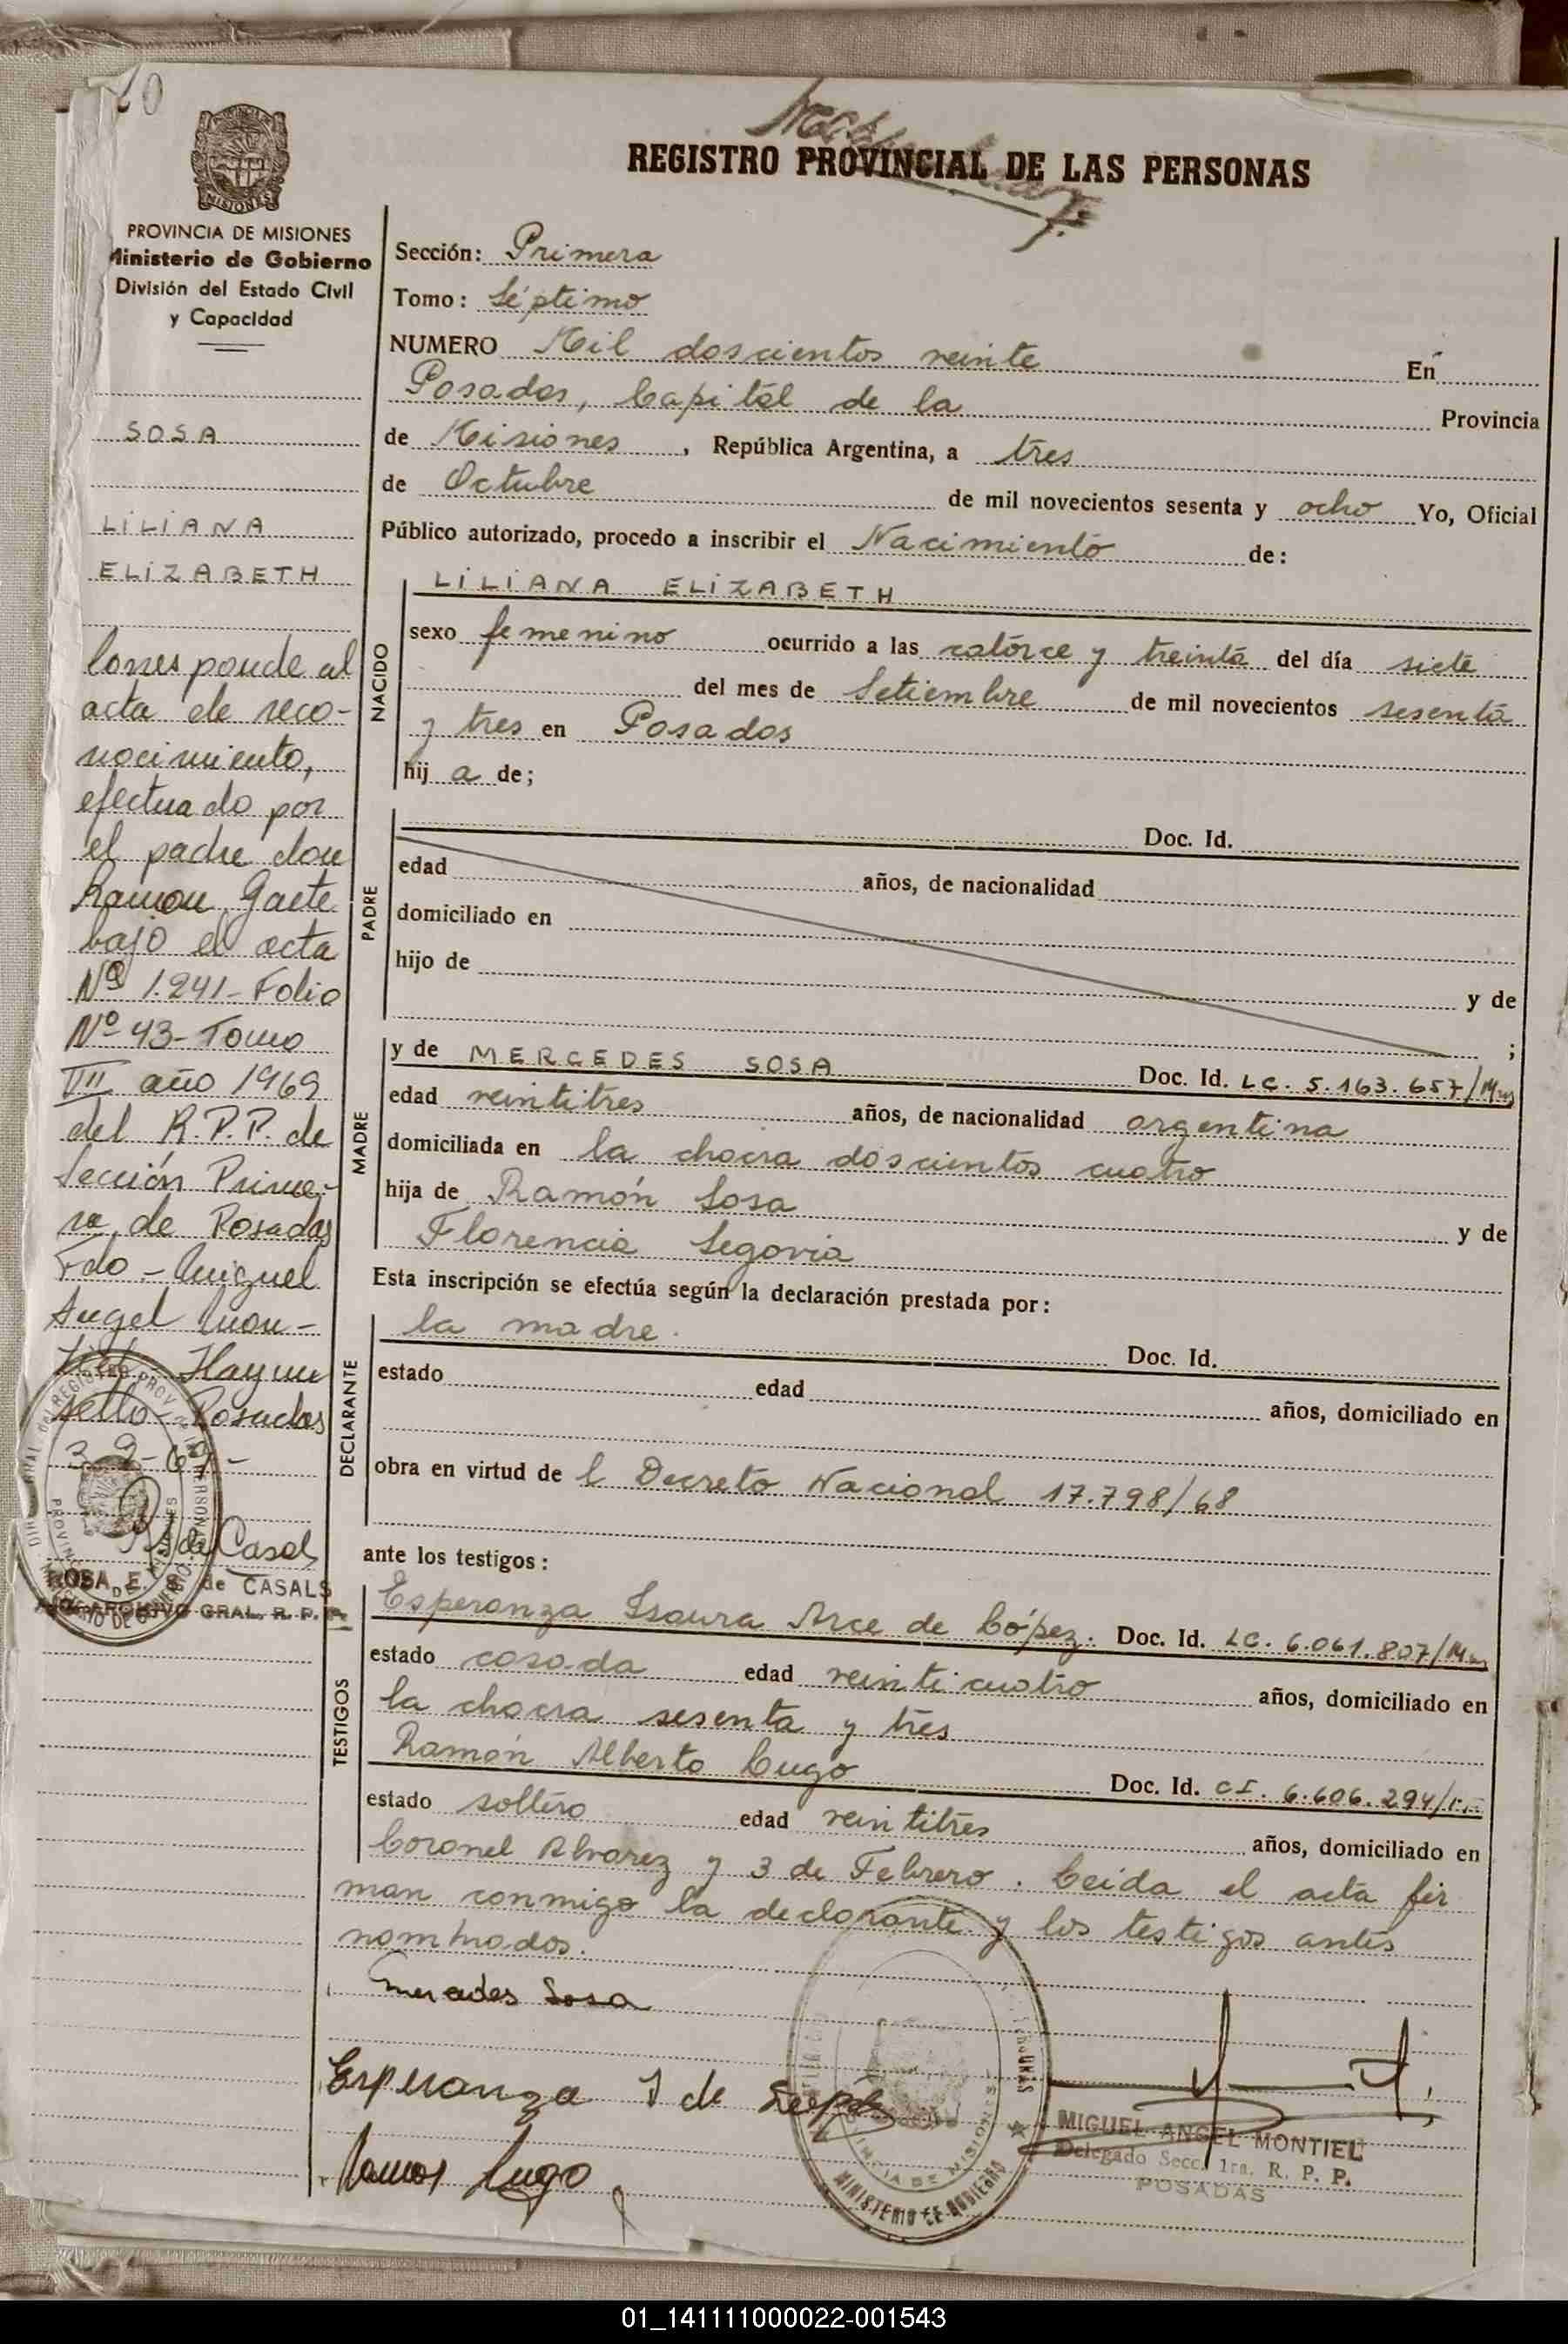 REGISTRO PROVINCIAL DE LAS PERSONAS
PROVINCIA DE MISIONES
Ministerio de Gobierno
División del Estado Civil
y Capacidad
SOSA
LILIANA
ELIZABETH
Corresponde al
acta de reco-
nocimiento,
efectuado por
el padre don
Ramon Gaete
bajo el acta
Nº 1.241-Folio
Nº 43-Tomo
VII año 1969
del R.P.P. de
Sección Prime-
ra de Posadas
Fdo-Miguel
Angel Mon-
tiel Hay un
sello-Posadas
3-9-69-
R S de Casals
ROSA E. S. de CASALS
ARCHIVO GRAL. R. P. P.
Sección: Primera
Tomo: Séptimo
NUMERO Mil doscientos veinte En
Posadas, Capital de la Provincia
de Misiones, República Argentina, a tres
de Octubre de mil novecientos sesenta y ocho Yo, Oficial
Público autorizado, procedo a inscribir el Nacimiento de:
NACIDO
LILIANA ELIZABETH
sexo femenino ocurrido a las catorce y treinta del día siete
del mes de Setiembre de mil novecientos sesenta
y tres en Posadas
hij a de;
PADRE
Doc. Id.
edad años, de nacionalidad
domiciliado en
hijo de y de
;
MADRE
y de MERCEDES SOSA Doc. Id. LC. 5.163.657/Mns
edad veintitres años, de nacionalidad argentina
domiciliada en la chacra doscientos cuatro
hija de Ramón Sosa y de
Florencia Segovia
Esta inscripción se efectúa según la declaración prestada por:
DECLARANTE
la madre. Doc. Id.
estado edad años, domiciliado en
obra en virtud de l Decreto Nacional 17.798/68
ante los testigos:
TESTIGOS
Esperanza Isaura Arce de López. Doc. Id. LC. 6.061.807/Mns
estado casada edad veinticuatro años, domiciliado en
la chacra sesenta y tres
Ramón Alberto Lugo Doc. Id. CI. 6.606.294/
estado soltero edad veintitres años, domiciliado en
Coronel Alvarez y 3 de Febrero. Leida el acta fir
man conmigo la declarante y los testigos antes
nombrados.
Mercedes Sosa
Esperanza I de Lopez
Ramon Lugo
MINISTERIO DE GOBIERNO
PROVINCIA DE MISIONES
MIGUEL ANGEL MONTIEL
Delegado Secc. 1ra. R. P. P.
POSADAS
01_141111000022-001543